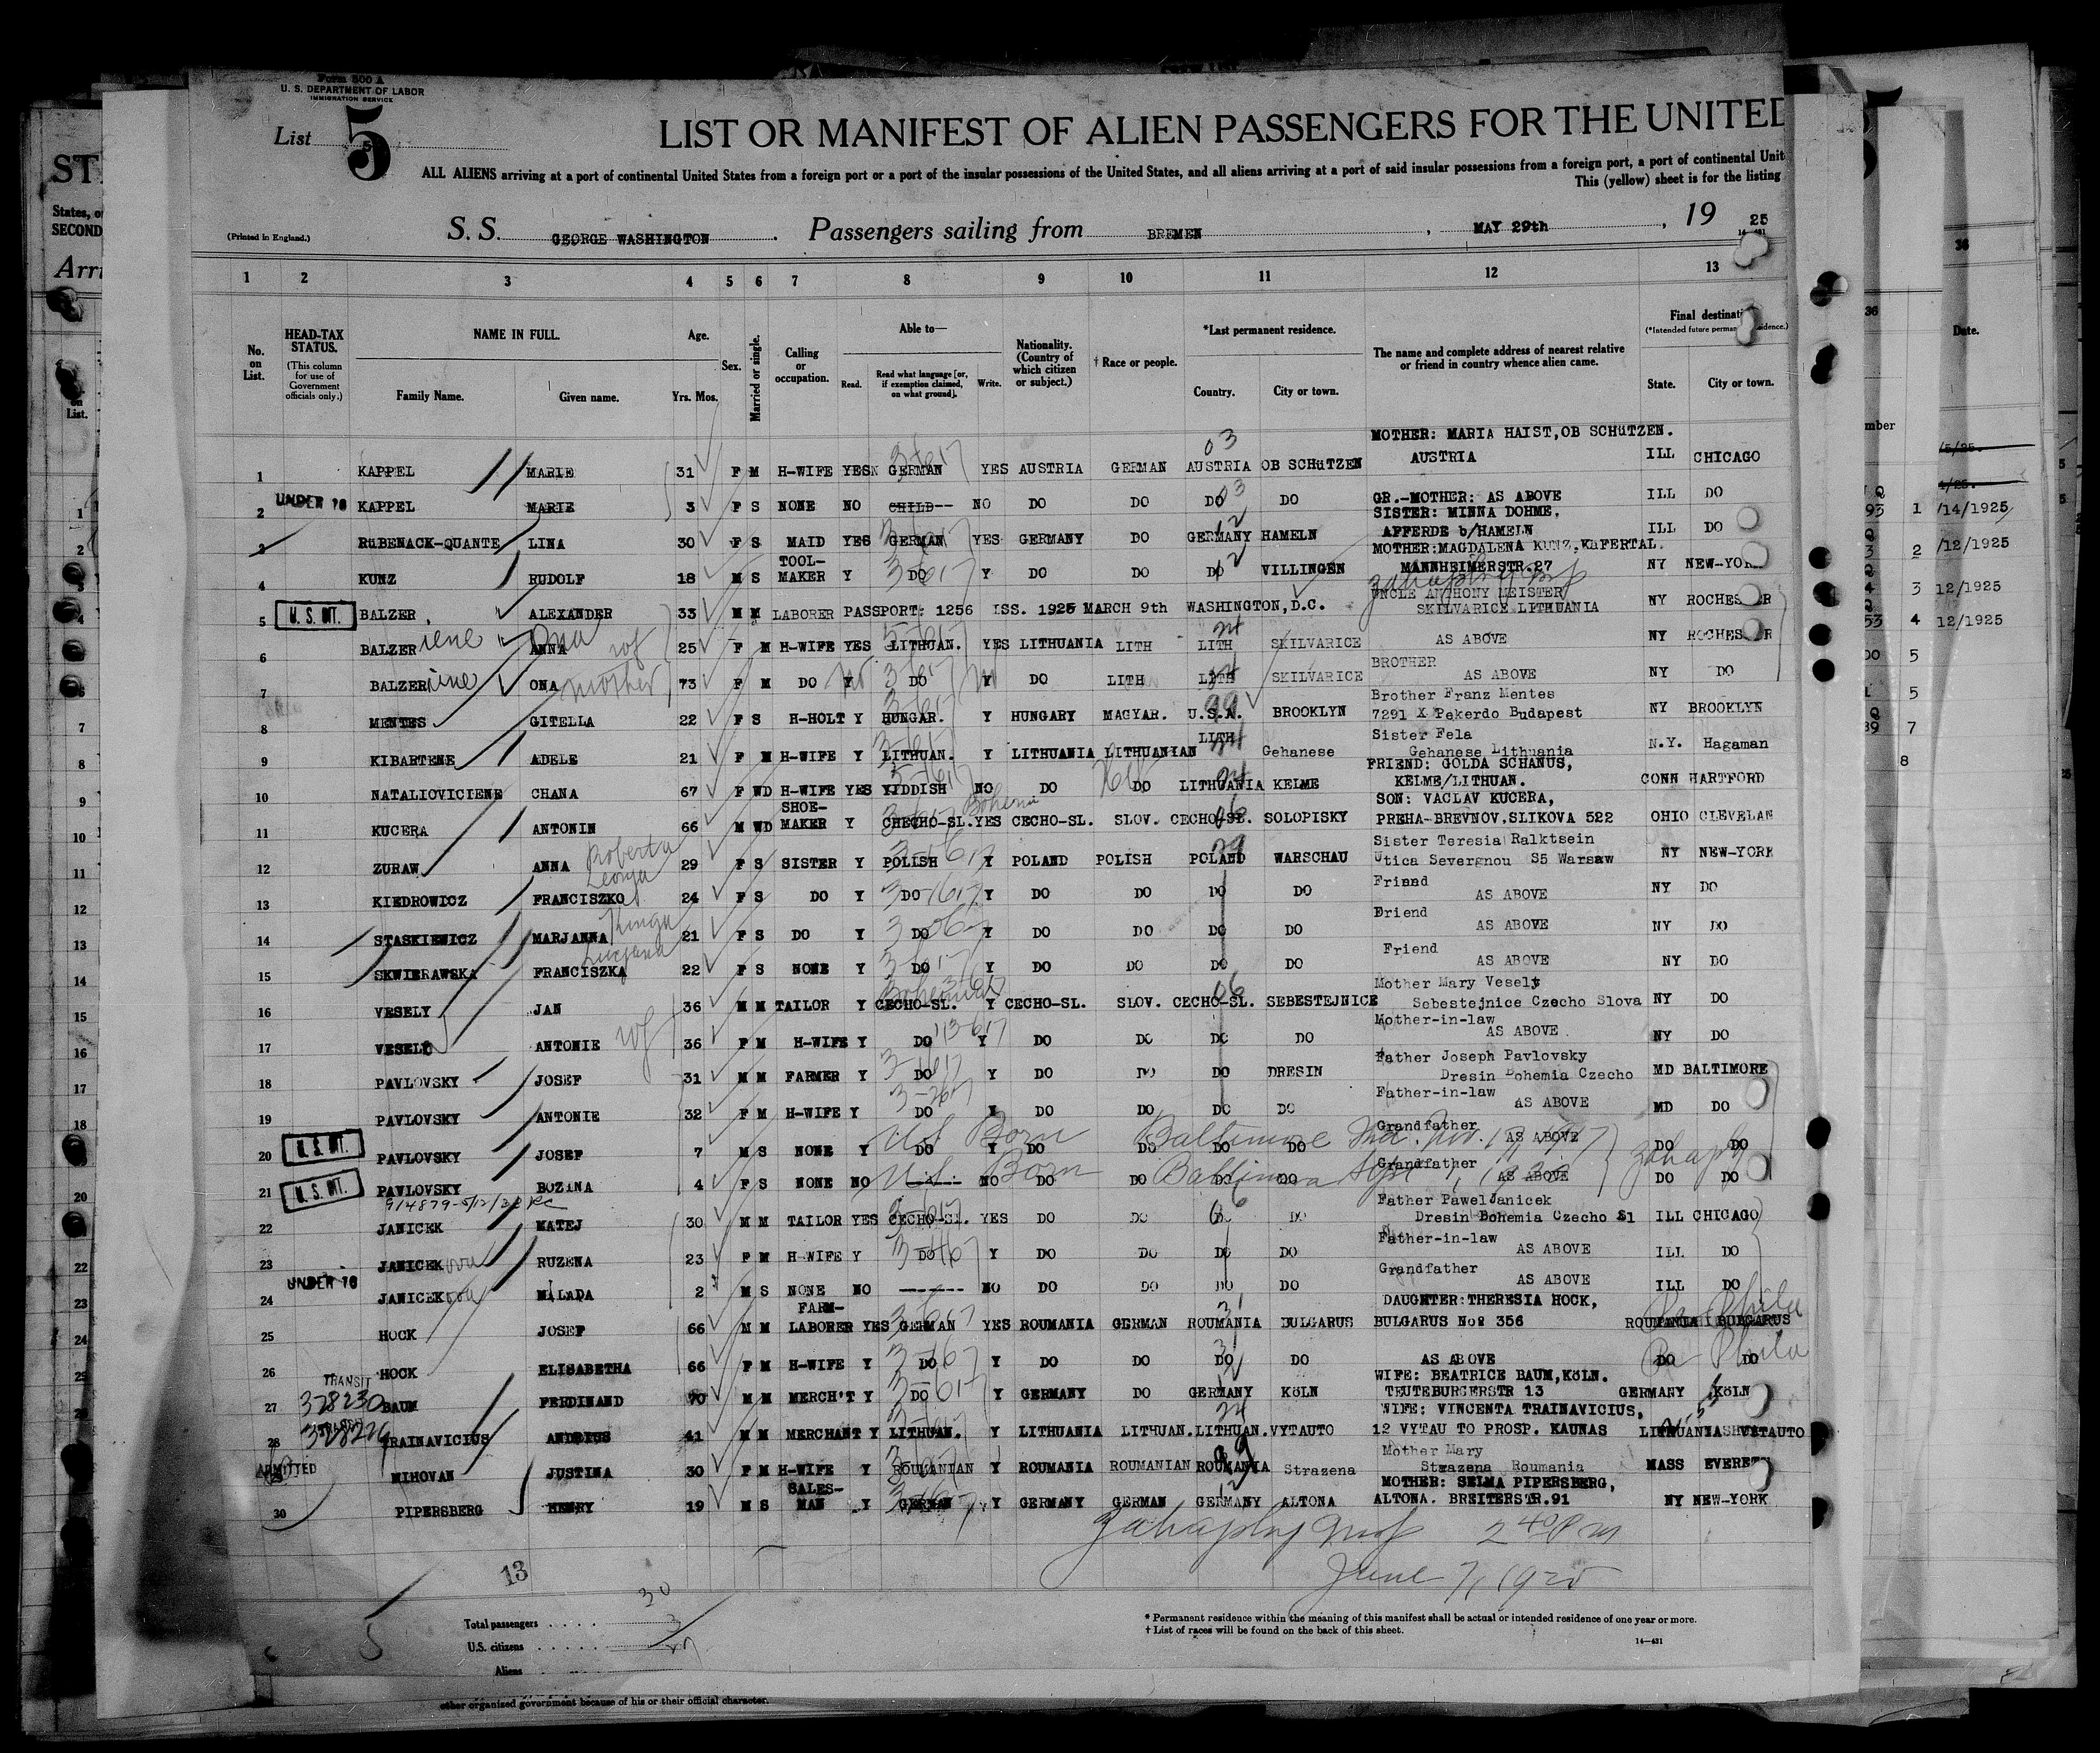 Form 500 A
U. S. DEPARTMENT OF LABOR
IMMIGRATION SERVICE
List 5
LIST OR MANIFEST OF ALIEN PASSENGERS FOR THE UNITED
ALL ALIENS arriving at a port of continental United States from a foreign port or a port of the insular possessions of the United States, and all aliens arriving at a port of said insular possessions from a foreign port, a port of continental Unit
This (yellow) sheet is for the listing
(Printed in England.)
S. S. GEORGE WASHINGTON . Passengers sailing from BREMEN , MAY 29th , 19 25
1 2 3 4 5 6 7 8 9 10 11 12 13
No. on List.
HEAD-TAX STATUS. (This column for use of Government officials only.)
NAME IN FULL. Family Name. Given name.
Age. Yrs. Mos.
Sex.
Married or single.
Calling or occupation.
Able to— Read. Read what language [or, if exemption claimed, on what ground]. Write.
Nationality. (Country of which citizen or subject.)
† Race or people.
*Last permanent residence. Country. City or town.
The name and complete address of nearest relative or friend in country whence alien came.
Final destinati (*Intended future perma idence.) State. City or town.
MOTHER: MARIA HAIST,OB SCHüTZEN.
1 KAPPEL MARIE 31 F M H-WIFE YES GERMAN YES AUSTRIA GERMAN AUSTRIA OB SCHüTZEN AUSTRIA ILL CHICAGO
2 UNDER 16 KAPPEL MARIE 3 F S NONE NO CHILD-- NO DO DO DO DO GR.-MOTHER: AS ABOVE ILL DO
SISTER: MINNA DOHME,
3 RüBENACK-QUANTE LINA 30 F S MAID YES GERMAN YES GERMANY DO GERMANY HAMELN AFFERDE b/HAMELN ILL DO
TOOL- MOTHER:MAGDALENA KUNZ,KäFERTAL.
4 KUNZ RUDOLF 18 M S MAKER Y DO Y DO DO DO VILLINGEN MANNHEIMERSTR.27 NY NEW-YOR
UNCLE ANTHONY MEISTER
5 U. S. CIT. BALZER, ALEXANDER 33 M M LABORER PASSPORT: 1256 ISS. 1925 MARCH 9th WASHINGTON,D.C. SKILVARICE LITHUANIA NY ROCHESTER
6 BALZER iene ANNA Ona wf 25 F M H-WIFE YES LITHUAN. YES LITHUANIA LITH LITH SKILVARICE AS ABOVE NY ROCHESTER
BROTHER
7 BALZER iene ONA mother 73 F M DO Y DO Y DO LITH LITH SKILVARICE AS ABOVE NY DO
Brother Franz Mentes
8 MENTES GITELLA 22 F S H-HOLT Y HUNGAR. Y HUNGARY MAGYAR. U.S.A. BROOKLYN 7291 X Pekerdo Budapest NY BROOKLYN
LITH Sister Fela
9 KIBARTENE ADELE 21 F M H-WIFE Y LITHUAN. Y LITHUANIA LITHUANIAN Gehanese Gehanese Lithuania N.Y. Hagaman
FRIEND: GOLDA SCHANUS,
10 NATALIOVICIENE CHANA 67 F WD H-WIFE YES YIDDISH NO DO LITHUANIA KELME KELME/LITHUAN. CONN HARTFORD
SHOE- SON: VACLAV KUCERA,
11 KUCERA ANTONIN 66 M WD MAKER Y CHECHO-SL. YES CECHO-SL. SLOV. CECHO-SL. SOLOPISKY PREHA-BREVNOV,SLIKOVA 522 OHIO CLEVELAN
Sister Teresia Ralktsein
12 ZURAW ANNA Roberta 29 F S SISTER Y POLISH Y POLAND POLISH POLAND WARSCHAU Utica Severgnou S5 Warsaw NY NEW-YORK
Friend
13 KIEDROWICZ FRANCISZKO 24 F S DO Y DO Y DO DO DO DO AS ABOVE NY DO
Friend
14 STASKIEWICZ MARJANNA Kinga 21 F S DO Y DO Y DO DO DO DO AS ABOVE NY DO
Friend
15 SKWIERAWSKA FRANCISZKA 22 F S NONE Y DO Y DO DO DO DO AS ABOVE NY DO
Mother Mary Vesely
16 VESELY JAN 36 M M TAILOR Y CECHO-SL. Bohemian Y CECHO-SL. SLOV. CECHO-SL. SEBESTEJNICE Sebestejnice Czecho Slova NY DO
Mother-in-law
17 VESELY ANTONIE wf 36 F M H-WIFE Y DO Y DO DO DO DO AS ABOVE NY DO
Father Joseph Pavlovsky
18 PAVLOVSKY JOSEF 31 M M FARMER Y DO Y DO DO DO DRESIN Dresin Bohemia Czecho MD BALTIMORE
Father-in-law
19 PAVLOVSKY ANTONIE 32 F M H-WIFE Y DO Y DO DO DO DO AS ABOVE MD DO
US Born Baltimore Md. Nov. 1917 Grandfather
20 U. S. CIT. PAVLOVSKY JOSEF 7 M S NONE Y DO Y DO DO DO DO AS ABOVE DO DO
US Born Baltimore Sept 1, 1920 Grandfather
21 U. S. CIT. PAVLOVSKY BOZINA 4 F S NONE NO ------ NO DO DO DO DO AS ABOVE DO DO
Father Pawel Janicek
22 JANICEK MATEJ 30 M M TAILOR YES CECHO-SL. YES DO DO DO Dresin Bohemia Czecho Sl ILL CHICAGO
Father-in-law
23 JANICEK ova RUZENA 23 F M H WIFE Y DO Y DO DO DO DO AS ABOVE ILL DO
Grandfather
24 UNDER 16 JANICEK ova MILADA 2 M S NONE NO ------ NO DO DO DO DO AS ABOVE ILL DO
FARM- DAUGHTER:THERESIA HOCK,
25 HOCK JOSEF 66 M M LABORER YES GERMAN YES ROUMANIA GERMAN ROUMANIA BULGARUS BULGARUS No: 356 ROUMANIA BULGARUS Pa Phila
26 HOCK ELISABETHA 66 F M H-WIFE Y DO Y DO DO DO DO AS ABOVE DO DO Pa Phila
TRANSIT WIFE: BEATRICE BAUM,KöLN.
27 378230 BAUM FERDINAND 70 M M MERCH'T Y DO Y GERMANY DO GERMANY KöLN TEUTEBURGERSTR 13 GERMANY KöLN
WIFE: VINCENTA TRAINAVICIUS,
28 TRAINAVICIUS ANDRIUS 41 M M MERCHANT Y LITHUAN. Y LITHUANIA LITHUAN. LITHUAN. VYTAUTO 12 VYTAU TO PROSP. KAUNAS LITHUANIA VYTAUTO
ADMITTED Mother Mary
MIHOVAN JUSTINA 30 F M H-WIFE Y ROUMANIAN Y ROUMANIA ROUMANIAN ROUMANIA Strazena Strazena Roumania MASS EVERETT
SALES- MOTHER: SELMA PIPERSBERG,
30 PIPERSBERG HENRY 19 M S MAN Y GERMAN Y GERMANY GERMAN GERMANY ALTONA ALTONA. BREITERSTR.91 NY NEW-YORK
2 40 P M
June 7, 1925
13
Total passengers . . . . . 30
U.S. citizens . . . . . 3
Aliens
* Permanent residence within the meaning of this manifest shall be actual or intended residence of one year or more.
† List of races will be found on the back of this sheet.
14—431
other organized government because of his or their official character.
States, o
SECOND
Arri
List.
36
Date.
mber
1 /14/1925
2 /12/1925
3 12/1925
4 12/1925
5
5
7
8